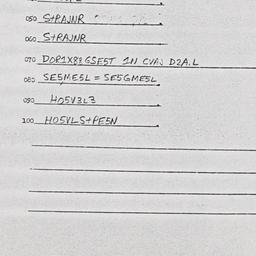 050 S+PAJNR
060 S+PAJNR
070 DOR1X88GSE5T 1N CVAJ D2A.L
080 SE5ME5L = SE5GME5L
090 HO5V3L3
100 HO5VLS+PE5N